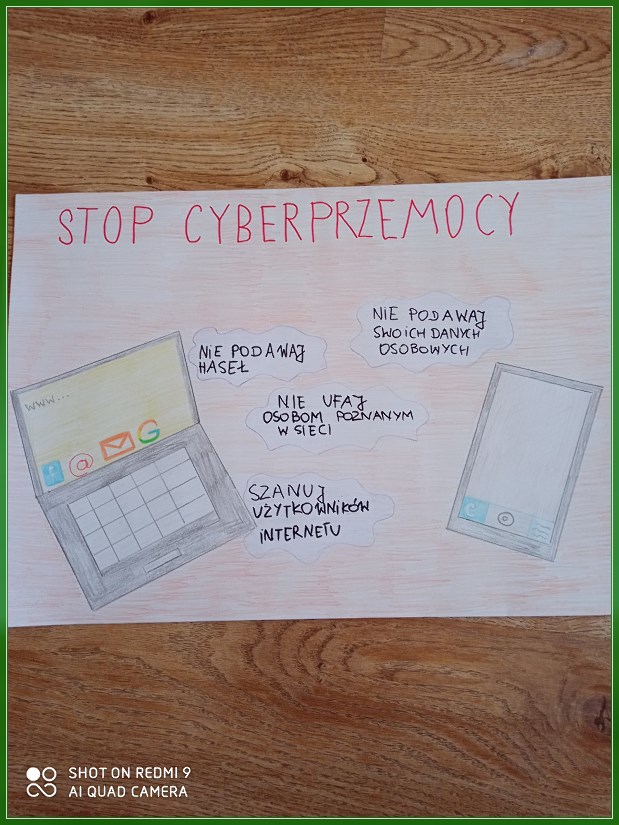 STOP CYBERPRZEMOCY
NIE PODAWAJ
SWOICH DANYCH
OSOBOWYCH
NIE PODAWAJ
HASEŁ
NIE UFAJ
OSOBOM POZNANYM
W SIECI
SZANUJ
UŻYTKOWNIKÓW
INTERNETU
www...
@
G
SHOT ON REDMI 9
AI QUAD CAMERA